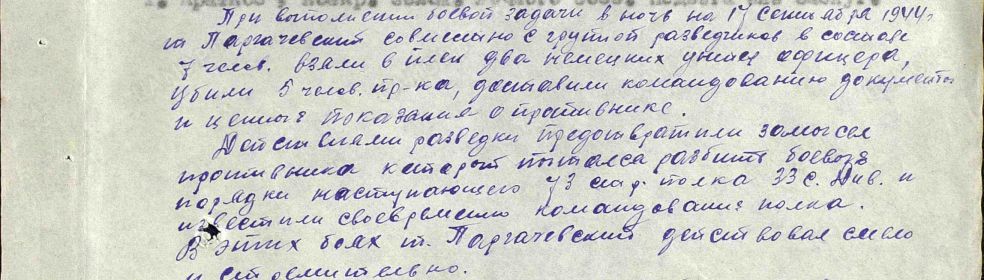 При выполнении боевой задачи в ночь на 17 сентября 1944г.
т. Паргачевский совместно с группой разведчиков в составе
7 челов. взяли в плен два немецких унтер офицера,
убили 5 челов. пр-ка, доставили командованию документы
и ценные показания о противнике.
Действиями разведки предотвратили замысел
противника которой пытался разбить боевые
порядки наступающего 73 полка 33 с. див. и
известили своевременно командование полка.
В этих боях т. Паргачевский действовал смело
и стремительно.